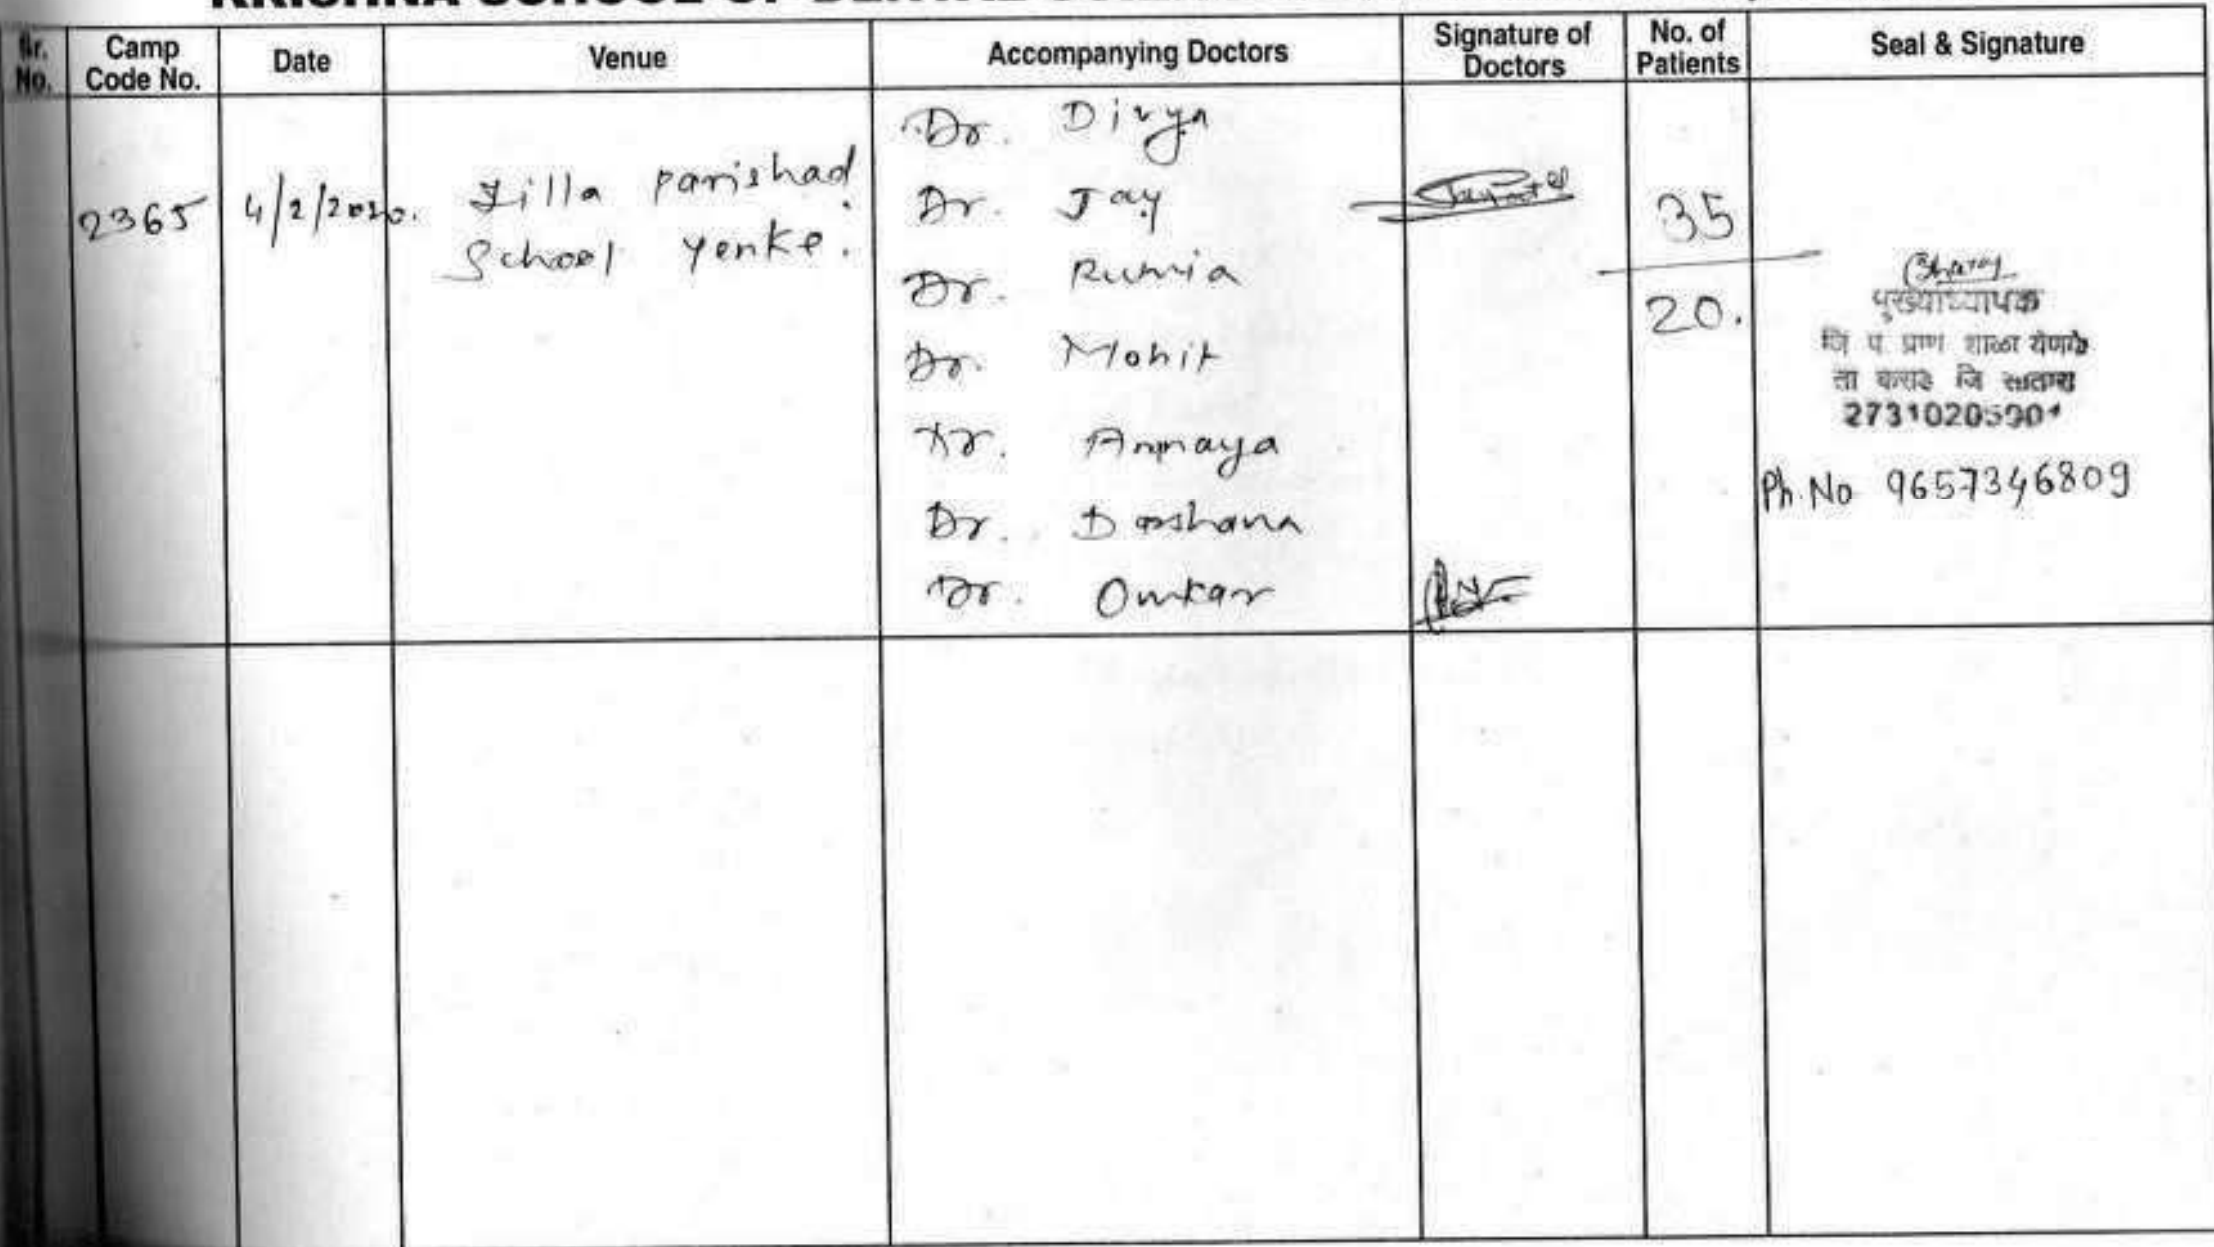 KRISHNA SCHOOL OF DENTAL
Sr. No.
Camp Code No.
Date
Venue
Accompanying Doctors
Signature of Doctors
No. of Patients
Seal & Signature
2365
4/2/2020.
Zilla parishad
School yenke.
Dr. Divya
Dr. Jay
Dr.
Dr. Mohit
Dr.
Dr. Darshana
Dr. Omkar
35
20.
मुख्याध्यापक
जि प प्राण शाळा येणके
ता कराड जि सातारा
Ph. No 9657346809